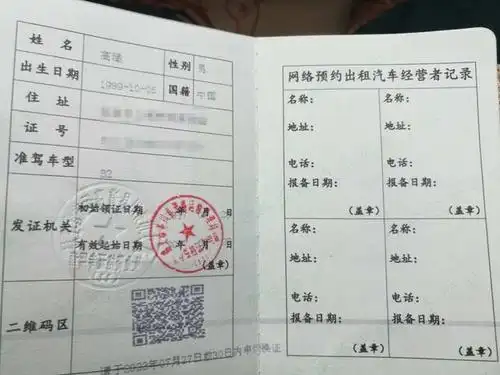 姓名 高 性别 男
出生日期 1989-10-06 国籍 中国
住址
证号
准驾车型 B2
发证机关
初始领证日期 年 月 日
有效起始日期 年 月 日
(盖章)
二维码区
请于2022年07月27日前30日内申请换证
网络预约出租汽车经营者记录
名称: 名称:
地址: 地址:
电话: 电话:
报备日期: 报备日期:
(盖章) (盖章)
名称: 名称:
地址: 地址:
电话: 电话:
报备日期: 报备日期:
(盖章) (盖章)